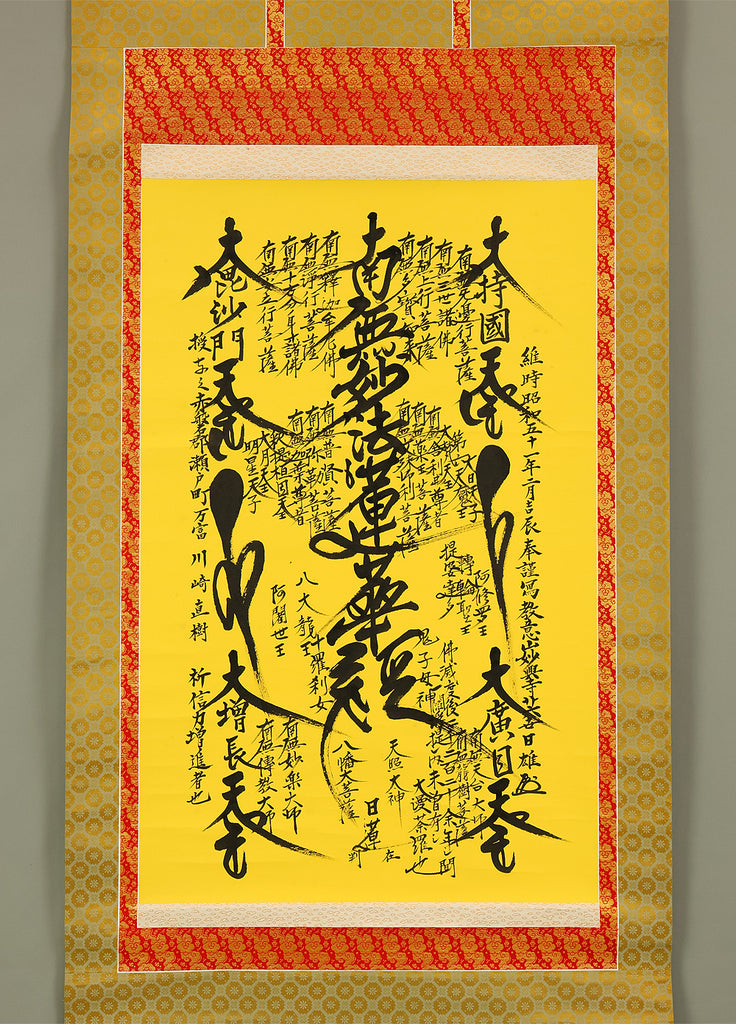 維時昭和五十一年二月吉辰奉謹寫教意山妙興寺
大持國天王
大廣目天王
南無無邊行菩薩
南無三世諸佛
南無上行菩薩
南無多寶如來
南無妙法蓮華経
南無釋迦牟尼佛
南無淨行菩薩
南無十方分身諸佛
南無安立行菩薩
大毘沙門天王
大增長天王
大日天王
第六天王
南無舍利弗尊者
南無藥王菩薩
南無文殊師利菩薩
南無普賢菩薩
南無弥勒菩薩
南無迦葉尊者
釈提桓因天王
大月天王
明星天子
阿修羅王
轉輪聖王
提婆達多
鬼子母神
八大龍王
十羅刹女
阿闍世王
南無天台大師
南無龍樹菩薩
南無妙樂大師
南無傳教大師
佛滅度後二千二百二十余年之間
一閻浮提之内未曾有之
大漫荼羅也
天照大神
八幡大菩薩
日蓮
在
判
授与之赤磐郡瀬戸町万富 川崎直樹 祈信力增進者也